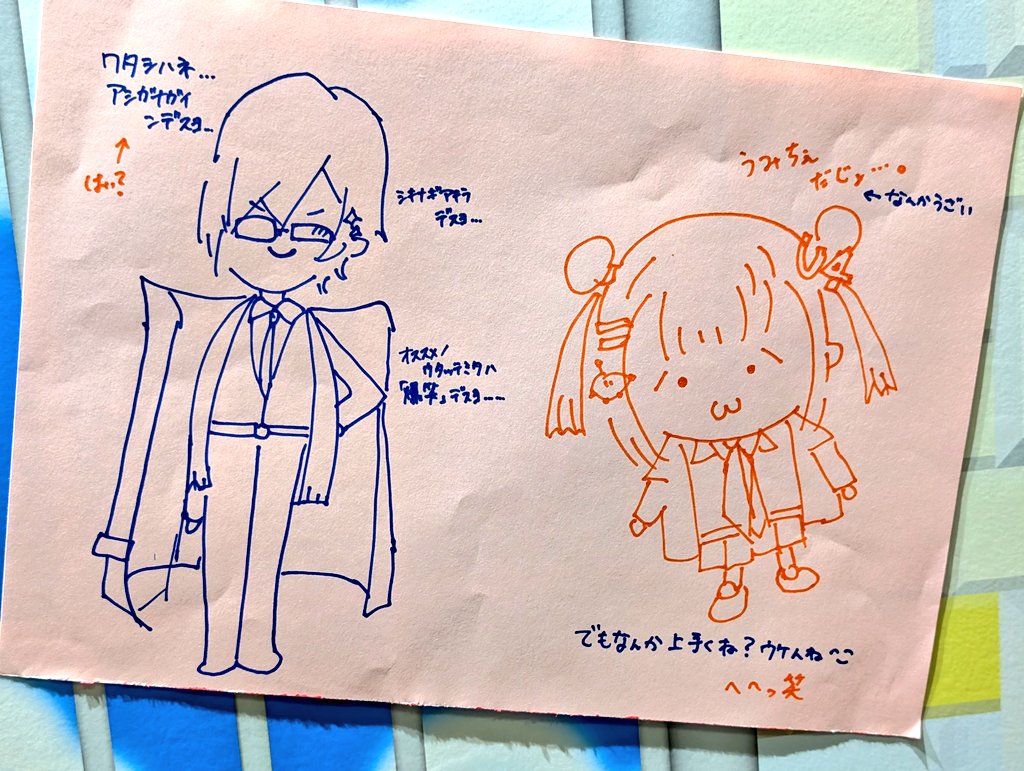 ワタシハネ...
アシガナガイ
ンデスヨ...
↑
はぃ?
シキナギアキラ
デスヨ...
オススメノ
ウタッテミタハ
「爆笑」デスヨ......
うみちぇ
だじょ...。
←なんかうざい
でもなんか上手くね?ウケんね^^
へへっ笑